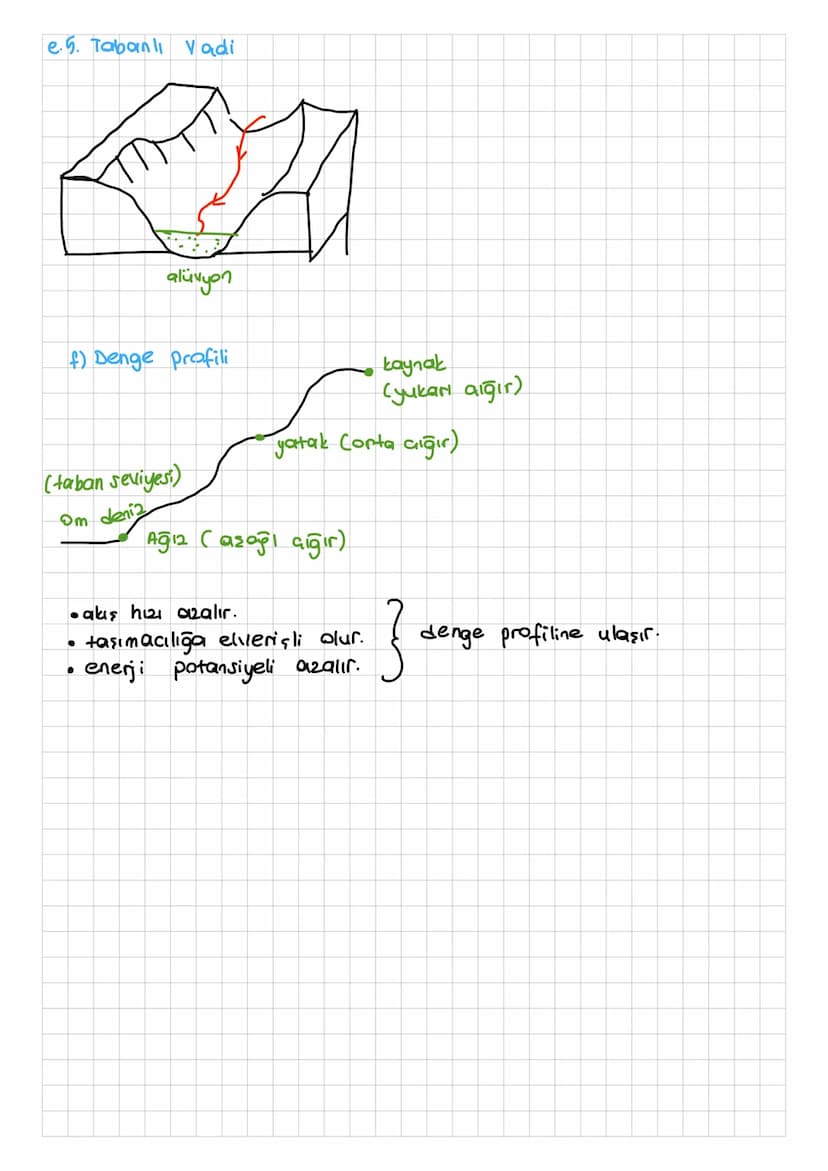 e.5. Tabanlı Vadi
alüvyon
f) Denge profili
kaynak
(yukarı çığır)
yatak (orta çığır)
(taban seviyesi)
0m deniz
Ağız (aşağı çığır)
• akış hızı azalır.
• taşımacılığa elverişli olur.
• enerji potansiyeli azalır.
denge profiline ulaşır.